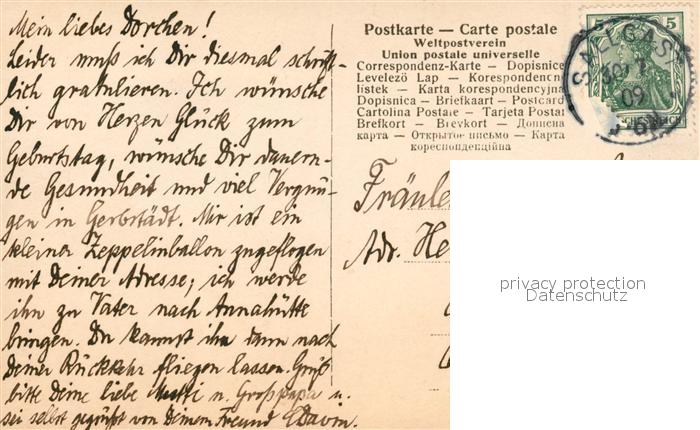 Mein liebes Dorchen!
Leider muß ich Dir diesmal schrift-
lich gratulieren. Ich wünsche
Dir von Herzen Glück zum
Geburtstag, wünsche Dir dauern-
de Gesundheit und viel Vergnü-
gen in Gerbstädt. Mir ist ein
kleiner Zeppelinballon zugeflogen
mit Deiner Adresse; ich werde
ihn zu Vater nach Annahütte
bringen. Du kannst ihn dann nach
Deiner Rückkehr fliegen lassen. Grüß
bitte Deine liebe Mutti u. Großpapa u.
sei selbst gegrüßt von Deinem Freund
Postkarte — Carte postale
Weltpostverein
Union postale universelle
Correspondenz-Karte — Dopisnice
Levelező Lap — Korespondencni
listek — Karta korespondencyjna
Dopisnica — Briefkaart — Postcard
Cartolina Postale — Tarjeta Postal
Brefkort — Brevkort — Дописна
карта — Открытое письмо — Карта
кореспонденційна
5 5
09
Fräule
Adr. He
privacy protection
Datenschutz